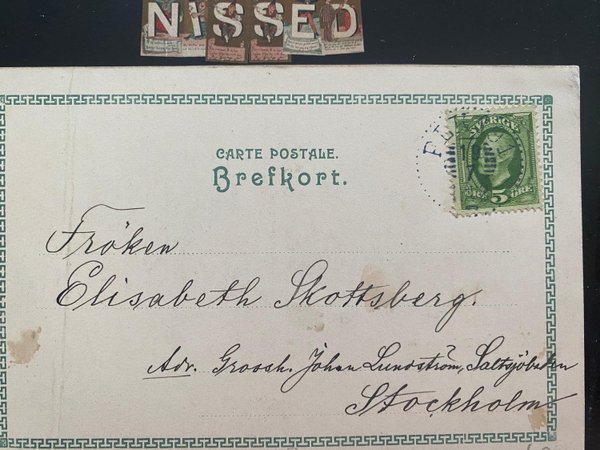 NISSED
CARTE POSTALE.
Brefkort.
SVERIGE
5 ÖRE
Fröken
Elisabeth Skottsberg.
Adr. Grossh. Johan Lundström, Saltsjöbaden
Stockholm